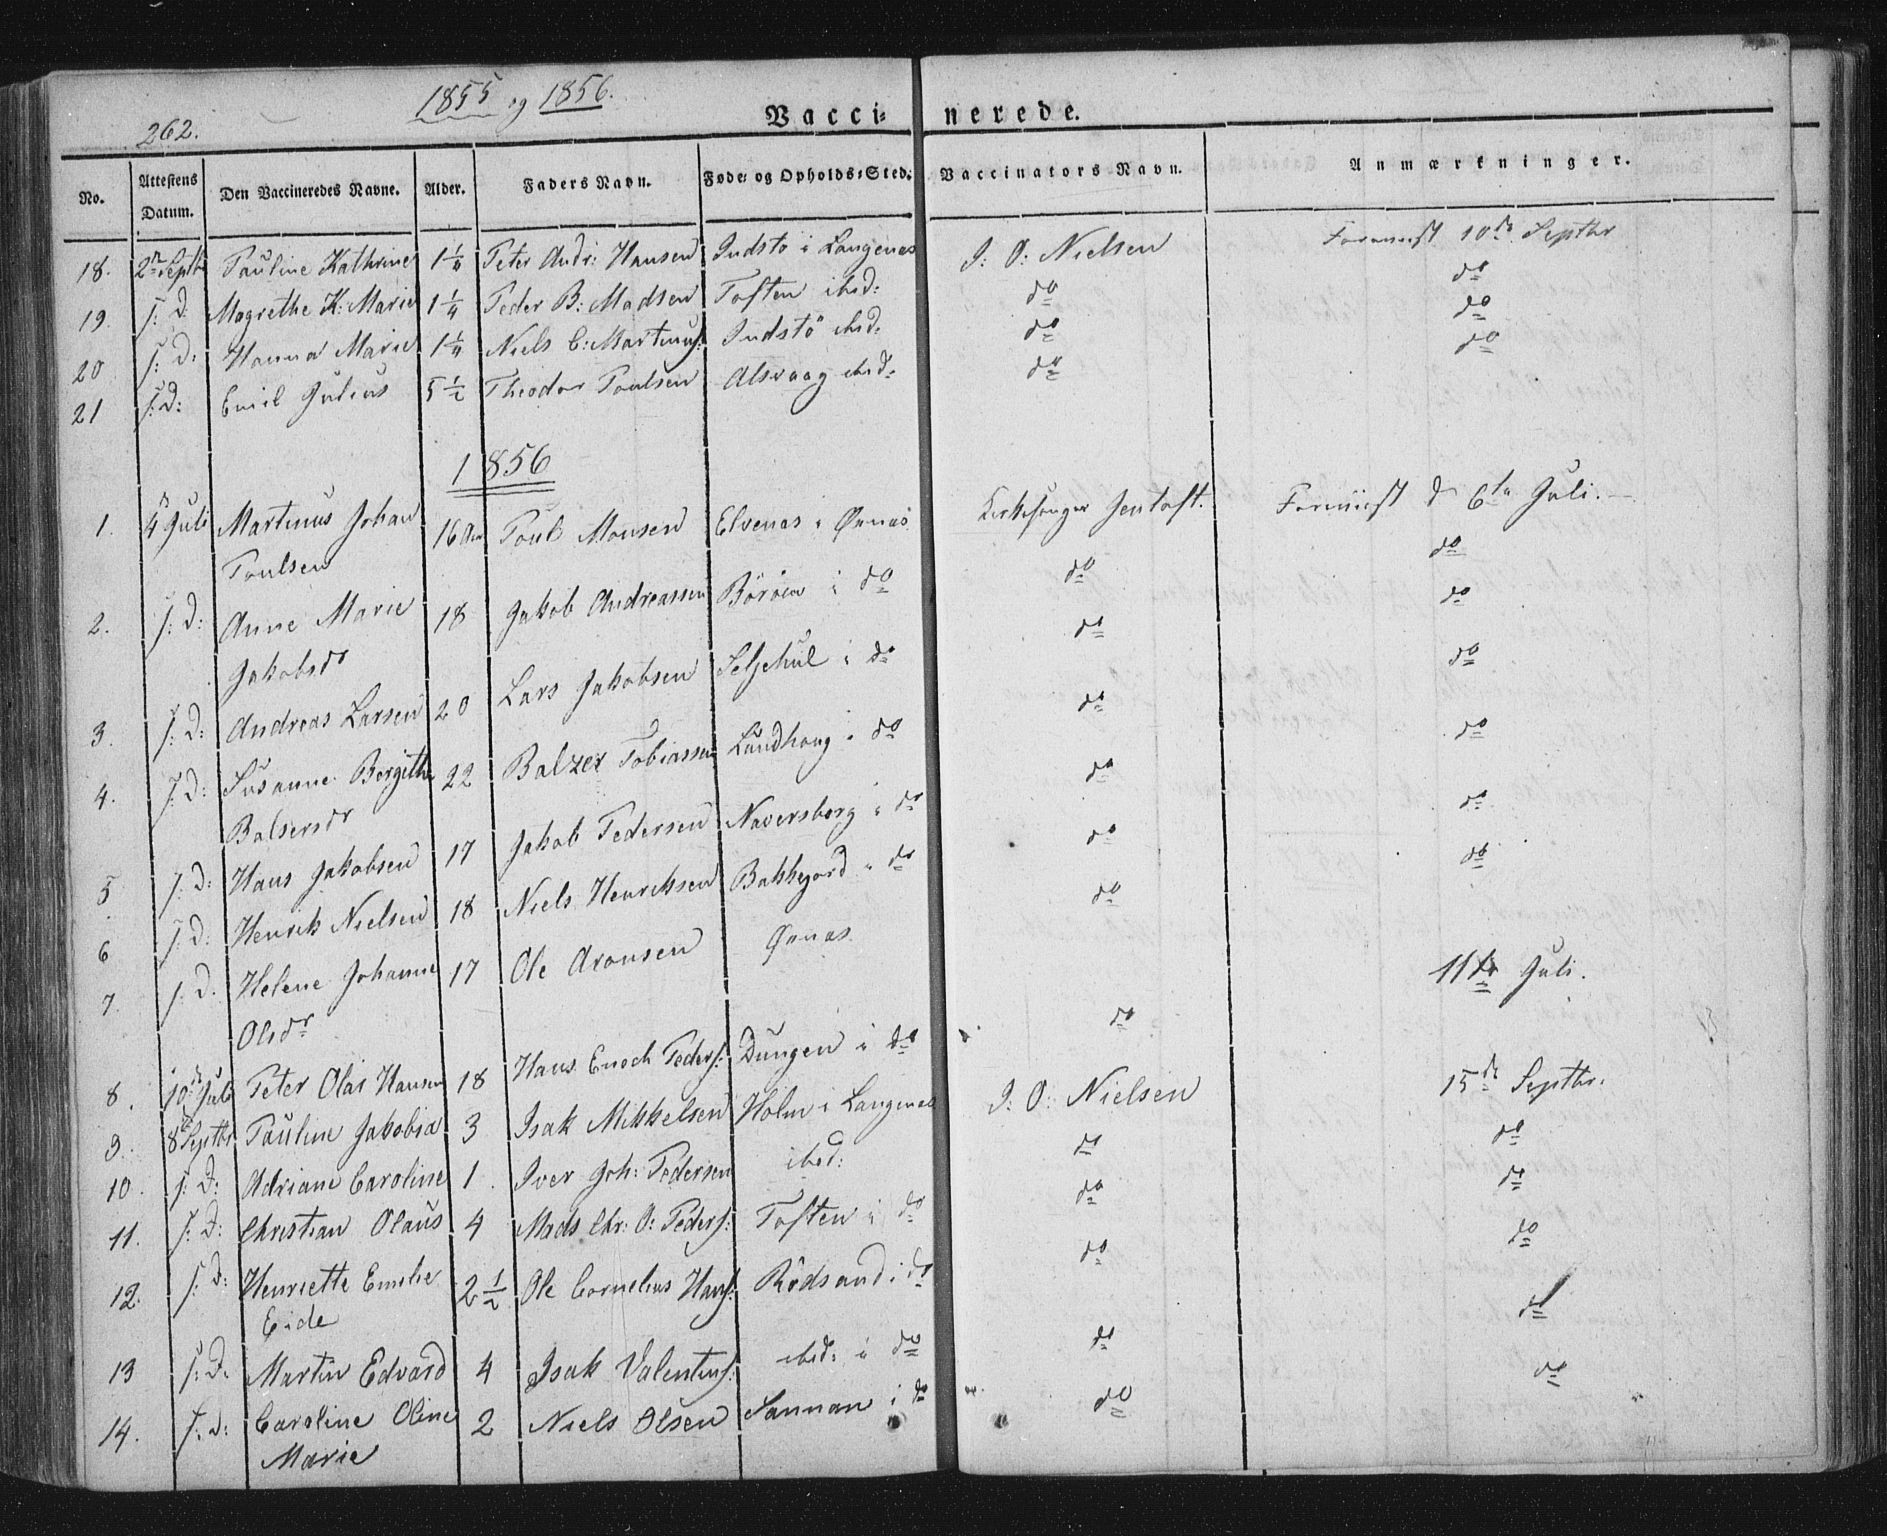 262.
1855 og 1856.
Vaccinerede.
No. Attestens Datum. Den Vaccineredes Navne. Alder. Faders Navn. Føde- og Opholds-Sted. Vaccinators Navn. Anmærkninger.
18. 2n Septb Pauline Kathrine 1 1/4 Peter Andr: Hansen Indstø i Langenæs J: O: Nielsen Foreviist 10de Septbr
19. s: D. Magrethe K: Marie 1 1/4 Peder B: Madsen Toften ibid: do do
20 s: D: Hanna Marie 1 1/4 Niels C: Martinus: Indstö ibid. do do
21 s: D: Emil Julius 5 1/2 Theodor Poulsen Alsvaag ibid. do do
1856
1. 4 Juli Martinus Johan 16 Aar Poul Monsen Elvenæs i Øxnæs Kirkesanger Jentoft. Foreviist d 6te Juli.
Poulsen
2. s: D: Anne Marie 18 Jakob Andreassen Börøen i do do do
Jakobsdr
3. s: D: Andreas Larsen 20 Lars Jakobsen Seljehul i do do do
4. s: D: Susanne Bergithe 22 Balzer Tobiassen Lundhoug i do do do
Balsersdr
5 s: D: Hans Jakobsen 17 Jakob Pedersen Naversborg i do do do
6 s: D: Henrik Nielsen 18 Niels Henriksen Bakkejord i do do do
7. s: D. Helene Johanne 17 Ole Aronsen Øxnæs do do
Olsdr
8. 10de Juli Peter Olai Hansen 18 Hans Enoch Peders: Dungen i do do 11te Juli.
9. 8 Septbr Pauline Jakobia 3 Isak Mikkelsen Holm i Langenæs J: O: Nielsen 15de Septbr.
10. s: D: Adriane Caroline 1. Iver Joh: Pedersen ibid: do do
11. s: D: Christian Olaus 4 Mads Chr: O: Peders: Toften i do do do
12. s: D: Henriette Emilie 2 1/2 Ole Cornelius Hans: Rödsand i do do do
Eide
13 s: D. Martin Edvard 4 Isak Valentins: ibid: i do do do
14. s: D: Caroline Oline 2 Niels Olsen Sannan i do do do
Marie